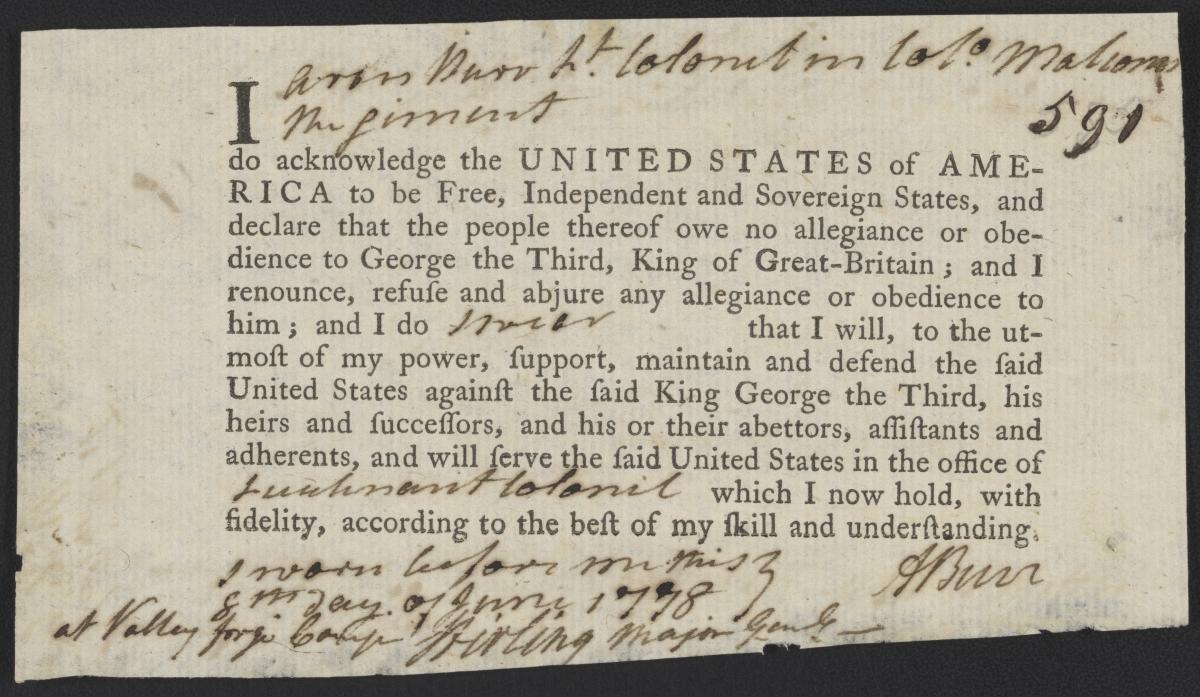 I aron Burr Lt. Colonel in Colo. Malcoms
Regiment
591
do acknowledge the UNITED STATES of AME-
RICA to be Free, Independent and Sovereign States, and
declare that the people thereof owe no allegiance or obe-
dience to George the Third, King of Great-Britain; and I
renounce, refuſe and abjure any allegiance or obedience to
him; and I do swear that I will, to the ut-
moſt of my power, ſupport, maintain and defend the ſaid
United States againſt the ſaid King George the Third, his
heirs and ſucceſſors, and his or their abettors, aſſiſtants and
adherents, and will ſerve the ſaid United States in the office of
Lieutenant Colonel which I now hold, with
fidelity, according to the beſt of my ſkill and underſtanding.
Sworn before me this
ABurr
8th Day of June 1778
at Valley forge Camp Stirling Major Genl